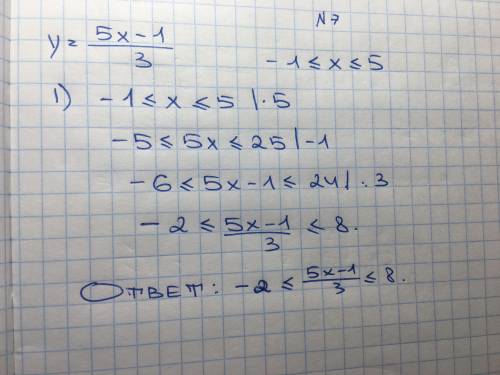 N7
y = \frac{5x-1}{3}
-1 ≤ x ≤ 5
1) -1 ≤ x ≤ 5 | ·5
-5 ≤ 5x ≤ 25 | -1
-6 ≤ 5x-1 ≤ 24 | : 3
-2 ≤ \frac{5x-1}{3} ≤ 8.
Ответ: -2 ≤ \frac{5x-1}{3} ≤ 8.